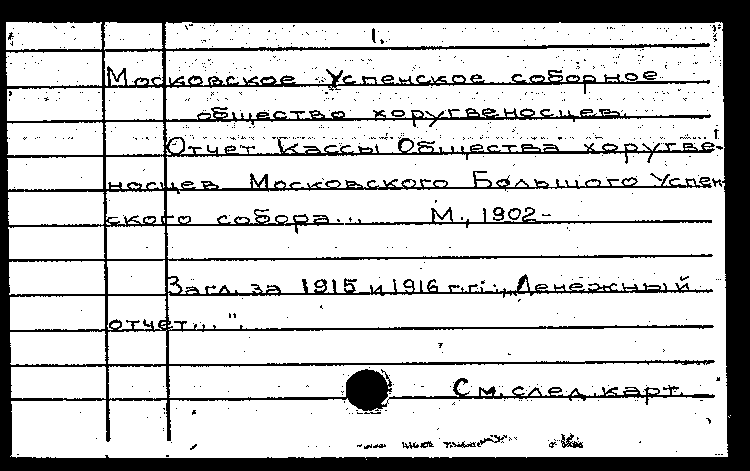 1.
Московское Успенское соборное
общество хоругвеносцев.
Отчет Кассы Общества хоругве-
носцев Московского Большого Успен-
ского собора... М., 1902-
Загл. за 1915 и 1916 г.г.: „Денежный
отчет...".
См. след. карт.